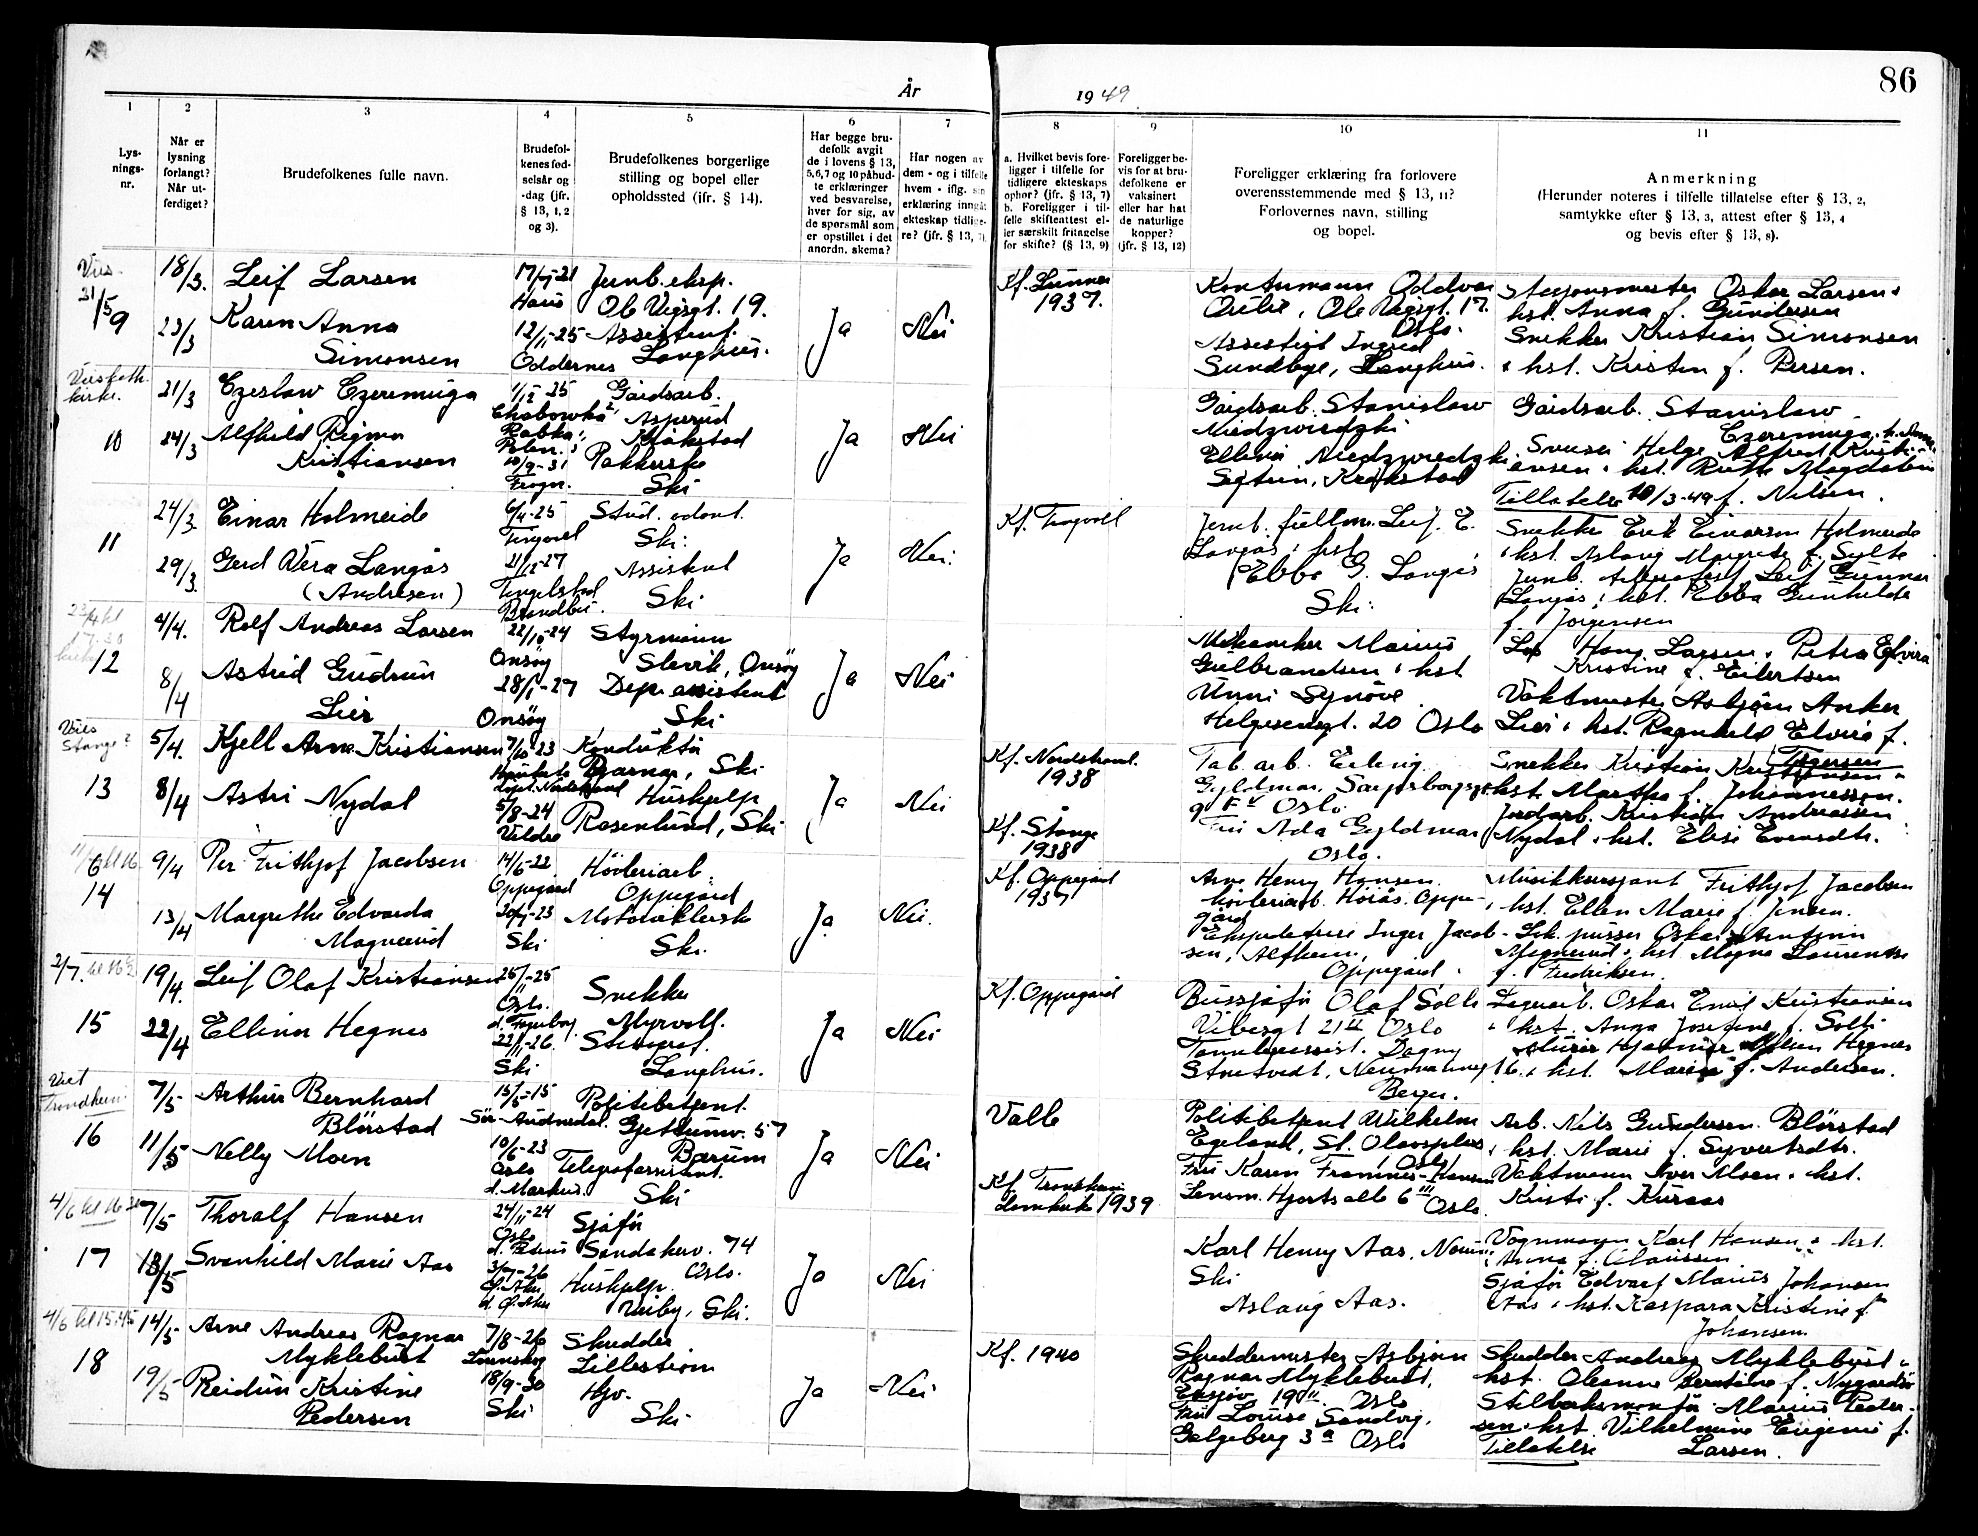 86
År
1949.
1
2
3
4
5
6
7
8
9
10
11
Lys-
nings-
nr.
Når er
lysning
forlangt?
Når ut-
ferdiget?
Brudefolkenes fulle navn.
Brudefol-
kenes fød-
selsår og
-dag (jfr.
§ 13, 1, 2
og 3).
Brudefolkenes borgerlige
stilling og bopel eller
opholdssted (jfr. § 14).
Har begge bru-
defolk avgit
de i lovens § 13,
5,6,7 og 10 påbud-
te erklæringer
ved besvarelse,
hver for sig, av
de spørsmål som
er opstillet i det
anordn. skema?
Har nogen av
dem - og i tilfelle
hvem - iflg. sin
erklæring inngåt
ekteskap tidlige-
re? (jfr. § 13, 7)
a. Hvilket bevis fore-
ligger i tilfelle for
tidligere ekteskaps
ophør? (jfr. § 13, 7)
b. Foreligger i til-
felle skifteattest el-
ler særskilt fritagelse
for skifte? (§ 13, 9)
Foreligger be-
vis for at bru-
defolkene er
vaksinert
eller har hat
de naturlige
kopper?
(jfr. § 13, 12)
Foreligger erklæring fra forlovere
overensstemmende med § 13, 11?
Forlovernes navn, stilling
og bopel.
Anmerkning
(Herunder noteres i tilfelle tillatelse efter § 13, 2,
samtykke efter § 13, 3, attest efter § 13, 4
og bevis efter § 13, 8).
31/5
9
18/3.
23/3
Leif Larsen
Karen Anna
Simonsen
12/1-25
Oddernes
Jernb. eksp.
Ole Vigsgt. 19.
Assistent.
Langhus.
Ja
Nei
Kf. Lunner
1937.
Kontormann Oddvar
Ole Vigsgt. 17.
Oslo.
Assistent Ingrid
Sundbye, Langhus.
Stasjonsmester Oskar Larsen
hst. Anna f. Gundersen
Snekker Kristian Simonsen
& hst. Kristin f. Persen.
10
21/3
24/3
Czeslaw Czeremuga
Alfhild Rigmor
Kristiansen
Rabka,
Polen.
10/9-31
Frogn.
Gårdsarb.
Asperud
Kråkstad
Pakkerske
Ski
Ja
Nei
Gårdsarb. Stanislaw
Niedzwiedzki
Kråkstad
Gårdsarb. Stanislaw
Czeremuga
Helge Alfred Kristi-
ansen & hst. Ruth Magdalene
Tillatelse 10/3-49 f. Nilsen.
11
24/3
29/3
Einar Holmeide
Gerd Vera Langås
(Andresen)
6/4-25
Tingvoll
21/12-27
Tingelstad
Brandbu.
Stud. odont.
Ski.
Assistent
Ski
Ja
Nei.
Kf. Tingvoll
Jernb. fullm. Leif. E.
Langås & hst
Ebba G. Langås
Ski.
Snekker Erik Einarsen Holmeide
& hst. Aslaug Margrete f. Sylte
Jernb. telegrafist Leif Gunnar
Langås & hst. Ebba Gunhilde
f. Jørgensen
12
4/4.
8/4
Rolf Andreas Larsen
Astrid Gudrun
Lier
22/10-24
Onsøy
28/1-27
Onsøy
Styrmann
Slevik, Onsøy
Dep. assistent
Ski
Ja
Nei
Mekaniker Marius
Gulbrandsen & hst
Unni Synøve
Helgesensgt. 20 Oslo
Los Hans Larsen & Petra Elvira
Kristine f. Eilertsen
Vaktmester Asbjørn Anker
Lier & hst. Ragnhild Elvire f.
Vies
Stange?
13
5/4.
8/4
Kjell Arne Kristiansen
Astri Nydal
7/10-23
døpt. Nordstrand
5/8-24
Veldre
Konduktør
Bjarnar, Ski
Hushjelp
Rosenlund, Ski
Ja
Nei
Kf. Nordstrand.
1938
Kf. Stange
1938
Fab. arb. Erling
Gyldmar, Sarpsborggt.
9 IV Oslo.
Fru Ada Gyldmar
Oslo.
Snekker Kristian Kristiansen &
hst. Martha f. Johannessen.
Jordarb. Kristian Andreassen
Nydal & hst. Elise Evensdtr.
14
9/4
13/4
Per Frithjof Jacobsen
Margrethe Edvarda
Magnerud
14/6-22.
Oppegård
Ski
Høvleriarb.
Oppegård
Ski.
Ja
Nei.
Kf. Oppegård
1937
Arne Henry Hansen
høvleriarb. Høiås. Oppe-
gård
Ekspeditrise Inger Jacob-
sen, Alfheim,
Oppegård.
Musikksersjant Frithjof Jacobsen
& hst. Ellen Marie f. Jensen.
Lok. pusser Oskar Antonin
Magnerud & hst. Magna Laurentse
f. Fredriksen.
2/7. kl 16
15
19/4.
22/4
Leif Olaf Kristiansen
Ellinor Hegnes
Oslo.
22/11-26.
Ski
Snekker
Myrvoll.
Stenograf.
Langhus.
Ja
Nei
Kf. Oppegård
Bussjåfør Olaf Solli
Vibesgt 21 II Oslo
Tannlegeassist. Dagny
Storetvedt,
Bergen.
Lagerarb. Oskar Emil Kristiansen
& hst. Anna Josefine f. Solli
Murer Hjalmar Hegnes
& hst. Marie f. Andersen.
Viet
Trondheim
16
7/5
11/5
Arthur Bernhard
Blørstad
Nelly Moen
15/6-15
Sør-Audnedal.
10/6-23
Oslo
d. Markus.
Politibetjent.
Gjettumv. 57
Bærum
Telegrafassistent.
Ski
Ja
Nei
Valle
Kf. Trondheim
domkirke 1939
Politibetjent Wilhelm
Egeland, St. Olavsplass
Oslo
Fru Karen Framnes-Hansen
Lensm. Hjortsalle 6 III
Oslo.
Arb. Nils Gundersen Blørstad
& hst. Marie f. Syvertsdtr.
Vaktmann Iver Moen & hst.
Kristi f. Kuraas
4/6 kl 16 30
17
7/5
18/5
Thoralf Hansen
Svanhild Marie Aas
24/11-24
Oslo
3/7-26
Sjåfør
Sandakerv. 74
Oslo.
Hushjelp.
Ski.
Ja
Nei
Karl Henry Aas,
Ski
Aslaug Aas.
Vognmann Karl Hansen & hst.
Anna f. Clausen
Sjåfør Edvarf Marius Johansen
Aas & hst. Kaspara Kristine f.
Johansen.
4/6 kl 15.45
18
14/5
19/5
Arne Andreas Ragnar
Myklebust
Reidun Kristine
Pedersen
7/8-26
18/9-30
Ski
Skredder
Lillestrøm
Hjv.
Ski
Ja
Nei
Kf. 1940
Skreddermester Asbjørn
Ragnar Myklebust,
Ensjøv. 19 II. Oslo
Fru Louise Sandvig,
Galgeberg 3a Oslo
Skredder Andreas Myklebust &
hst. Oleanne Berntine f. Nygårdsv
Stilbaksmontør Marius Peder-
sen & hst. Vilhelmine Eugenie f.
Tillatelse Larsen.